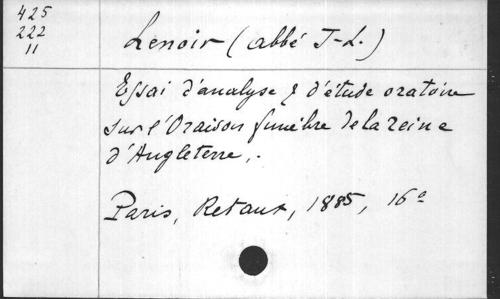 425
222
11
Lenoir (abbé J-L.)
Essai d'analyse & d'étude oratoire
sur l'Oraison funèbre de la reine
d'Angleterre,.
Paris, Retaux, 1885, 16º